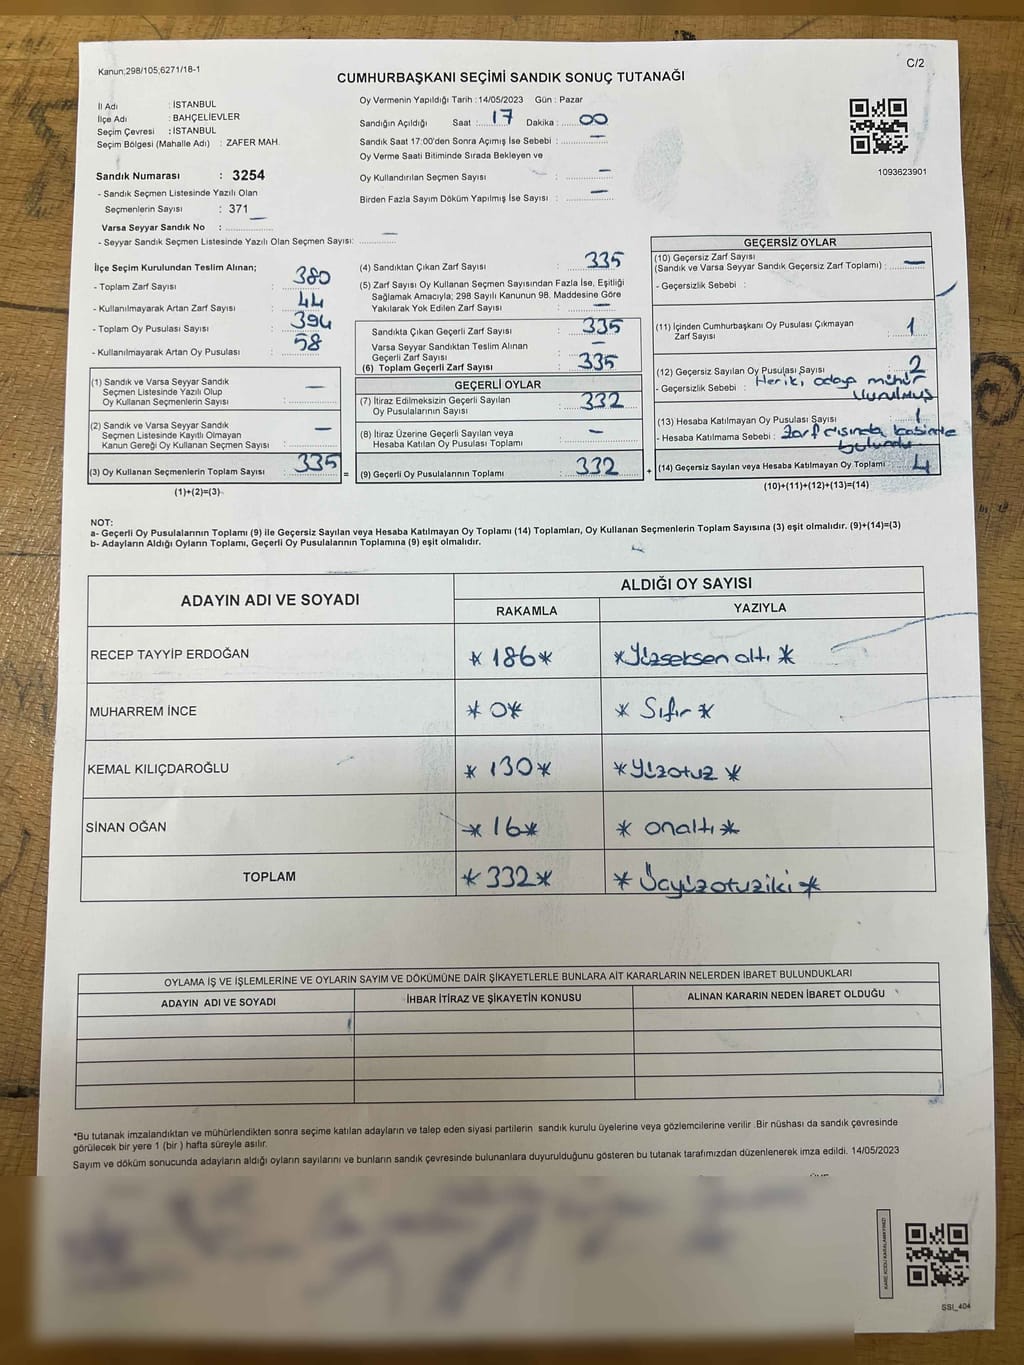 Kanun;298/105,6271/18-1
C/2
CUMHURBAŞKANI SEÇİMİ SANDIK SONUÇ TUTANAĞI
İl Adı : İSTANBUL
İlçe Adı : BAHÇELİEVLER
Seçim Çevresi : İSTANBUL
Seçim Bölgesi (Mahalle Adı) : ZAFER MAH.
Oy Vermenin Yapıldığı Tarih : 14/05/2023 Gün : Pazar
Sandığın Açıldığı Saat :.... 17 Dakika :.... 00
Sandık Saat 17:00'den Sonra Açımış İse Sebebi : —
Oy Verme Saati Bitiminde Sırada Bekleyen ve
Oy Kullandırılan Seçmen Sayısı : —
Birden Fazla Sayım Döküm Yapılmış İse Sayısı : —
1093623901
Sandık Numarası : 3254
- Sandık Seçmen Listesinde Yazılı Olan
Seçmenlerin Sayısı : 371
Varsa Seyyar Sandık No : —
- Seyyar Sandık Seçmen Listesinde Yazılı Olan Seçmen Sayısı: —
İlçe Seçim Kurulundan Teslim Alınan;
- Toplam Zarf Sayısı : 380
- Kullanılmayarak Artan Zarf Sayısı : 44
- Toplam Oy Pusulası Sayısı : 394
- Kullanılmayarak Artan Oy Pusulası : 58
(1) Sandık ve Varsa Seyyar Sandık
Seçmen Listesinde Yazılı Olup
Oy Kullanan Seçmenlerin Sayısı : —
(2) Sandık ve Varsa Seyyar Sandık
Seçmen Listesinde Kayıtlı Olmayan
Kanun Gereği Oy Kullanan Seçmen Sayısı : —
(3) Oy Kullanan Seçmenlerin Toplam Sayısı : 335 =
(1)+(2)=(3)
(4) Sandıktan Çıkan Zarf Sayısı : 335
(5) Zarf Sayısı Oy Kullanan Seçmen Sayısından Fazla İse, Eşitliği
Sağlamak Amacıyla; 298 Sayılı Kanunun 98. Maddesine Göre
Yakılarak Yok Edilen Zarf Sayısı : —
Sandıkta Çıkan Geçerli Zarf Sayısı : 335
Varsa Seyyar Sandıktan Teslim Alınan
Geçerli Zarf Sayısı : —
(6) Toplam Geçerli Zarf Sayısı : 335
GEÇERLİ OYLAR
(7) İtiraz Edilmeksizin Geçerli Sayılan
Oy Pusulalarının Sayısı : 332
(8) İtiraz Üzerine Geçerli Sayılan veya
Hesaba Katılan Oy Pusulası Toplamı : —
(9) Geçerli Oy Pusulalarının Toplamı : 332 +
GEÇERSİZ OYLAR
(10) Geçersiz Zarf Sayısı
(Sandık ve Varsa Seyyar Sandık Geçersiz Zarf Toplamı) : —
- Geçersizlik Sebebi :
(11) İçinden Cumhurbaşkanı Oy Pusulası Çıkmayan
Zarf Sayısı : 1
(12) Geçersiz Sayılan Oy Pusulası Sayısı : 2
- Geçersizlik Sebebi : Her iki adaya mühür
vurulmuş
(13) Hesaba Katılmayan Oy Pusulası Sayısı : 1
- Hesaba Katılmama Sebebi : Zarf dışında kabinde
bulundu
(14) Geçersiz Sayılan veya Hesaba Katılmayan Oy Toplamı : 4
(10)+(11)+(12)+(13)=(14)
NOT:
a- Geçerli Oy Pusulalarının Toplamı (9) ile Geçersiz Sayılan veya Hesaba Katılmayan Oy Toplamı (14) Toplamları, Oy Kullanan Seçmenlerin Toplam Sayısına (3) eşit olmalıdır. (9)+(14)=(3)
b- Adayların Aldığı Oyların Toplamı, Geçerli Oy Pusulalarının Toplamına (9) eşit olmalıdır.
ADAYIN ADI VE SOYADI
ALDIĞI OY SAYISI
RAKAMLA YAZIYLA
RECEP TAYYİP ERDOĞAN *186* *Yüzseksen altı*
MUHARREM İNCE *0* *Sıfır*
KEMAL KILIÇDAROĞLU *130* *Yüzotuz*
SİNAN OĞAN *16* *onaltı*
TOPLAM *332* *Üçyüzotuziki*
OYLAMA İŞ VE İŞLEMLERİNE VE OYLARIN SAYIM VE DÖKÜMÜNE DAİR ŞİKAYETLERLE BUNLARA AİT KARARLARIN NELERDEN İBARET BULUNDUKLARI
ADAYIN ADI VE SOYADI İHBAR İTİRAZ VE ŞİKAYETİN KONUSU ALINAN KARARIN NEDEN İBARET OLDUĞU
*Bu tutanak imzalandıktan ve mühürlendikten sonra seçime katılan adayların ve talep eden siyasi partilerin sandık kurulu üyelerine veya gözlemcilerine verilir .Bir nüshası da sandık çevresinde
görülecek bir yere 1 (bir ) hafta süreyle asılır.
Sayım ve döküm sonucunda adayların aldığı oyların sayılarını ve bunların sandık çevresinde bulunanlara duyurulduğunu gösteren bu tutanak tarafımızdan düzenlenerek imza edildi. 14/05/2023
KARE KODU KARALAMAYINIZ!
SSI_404